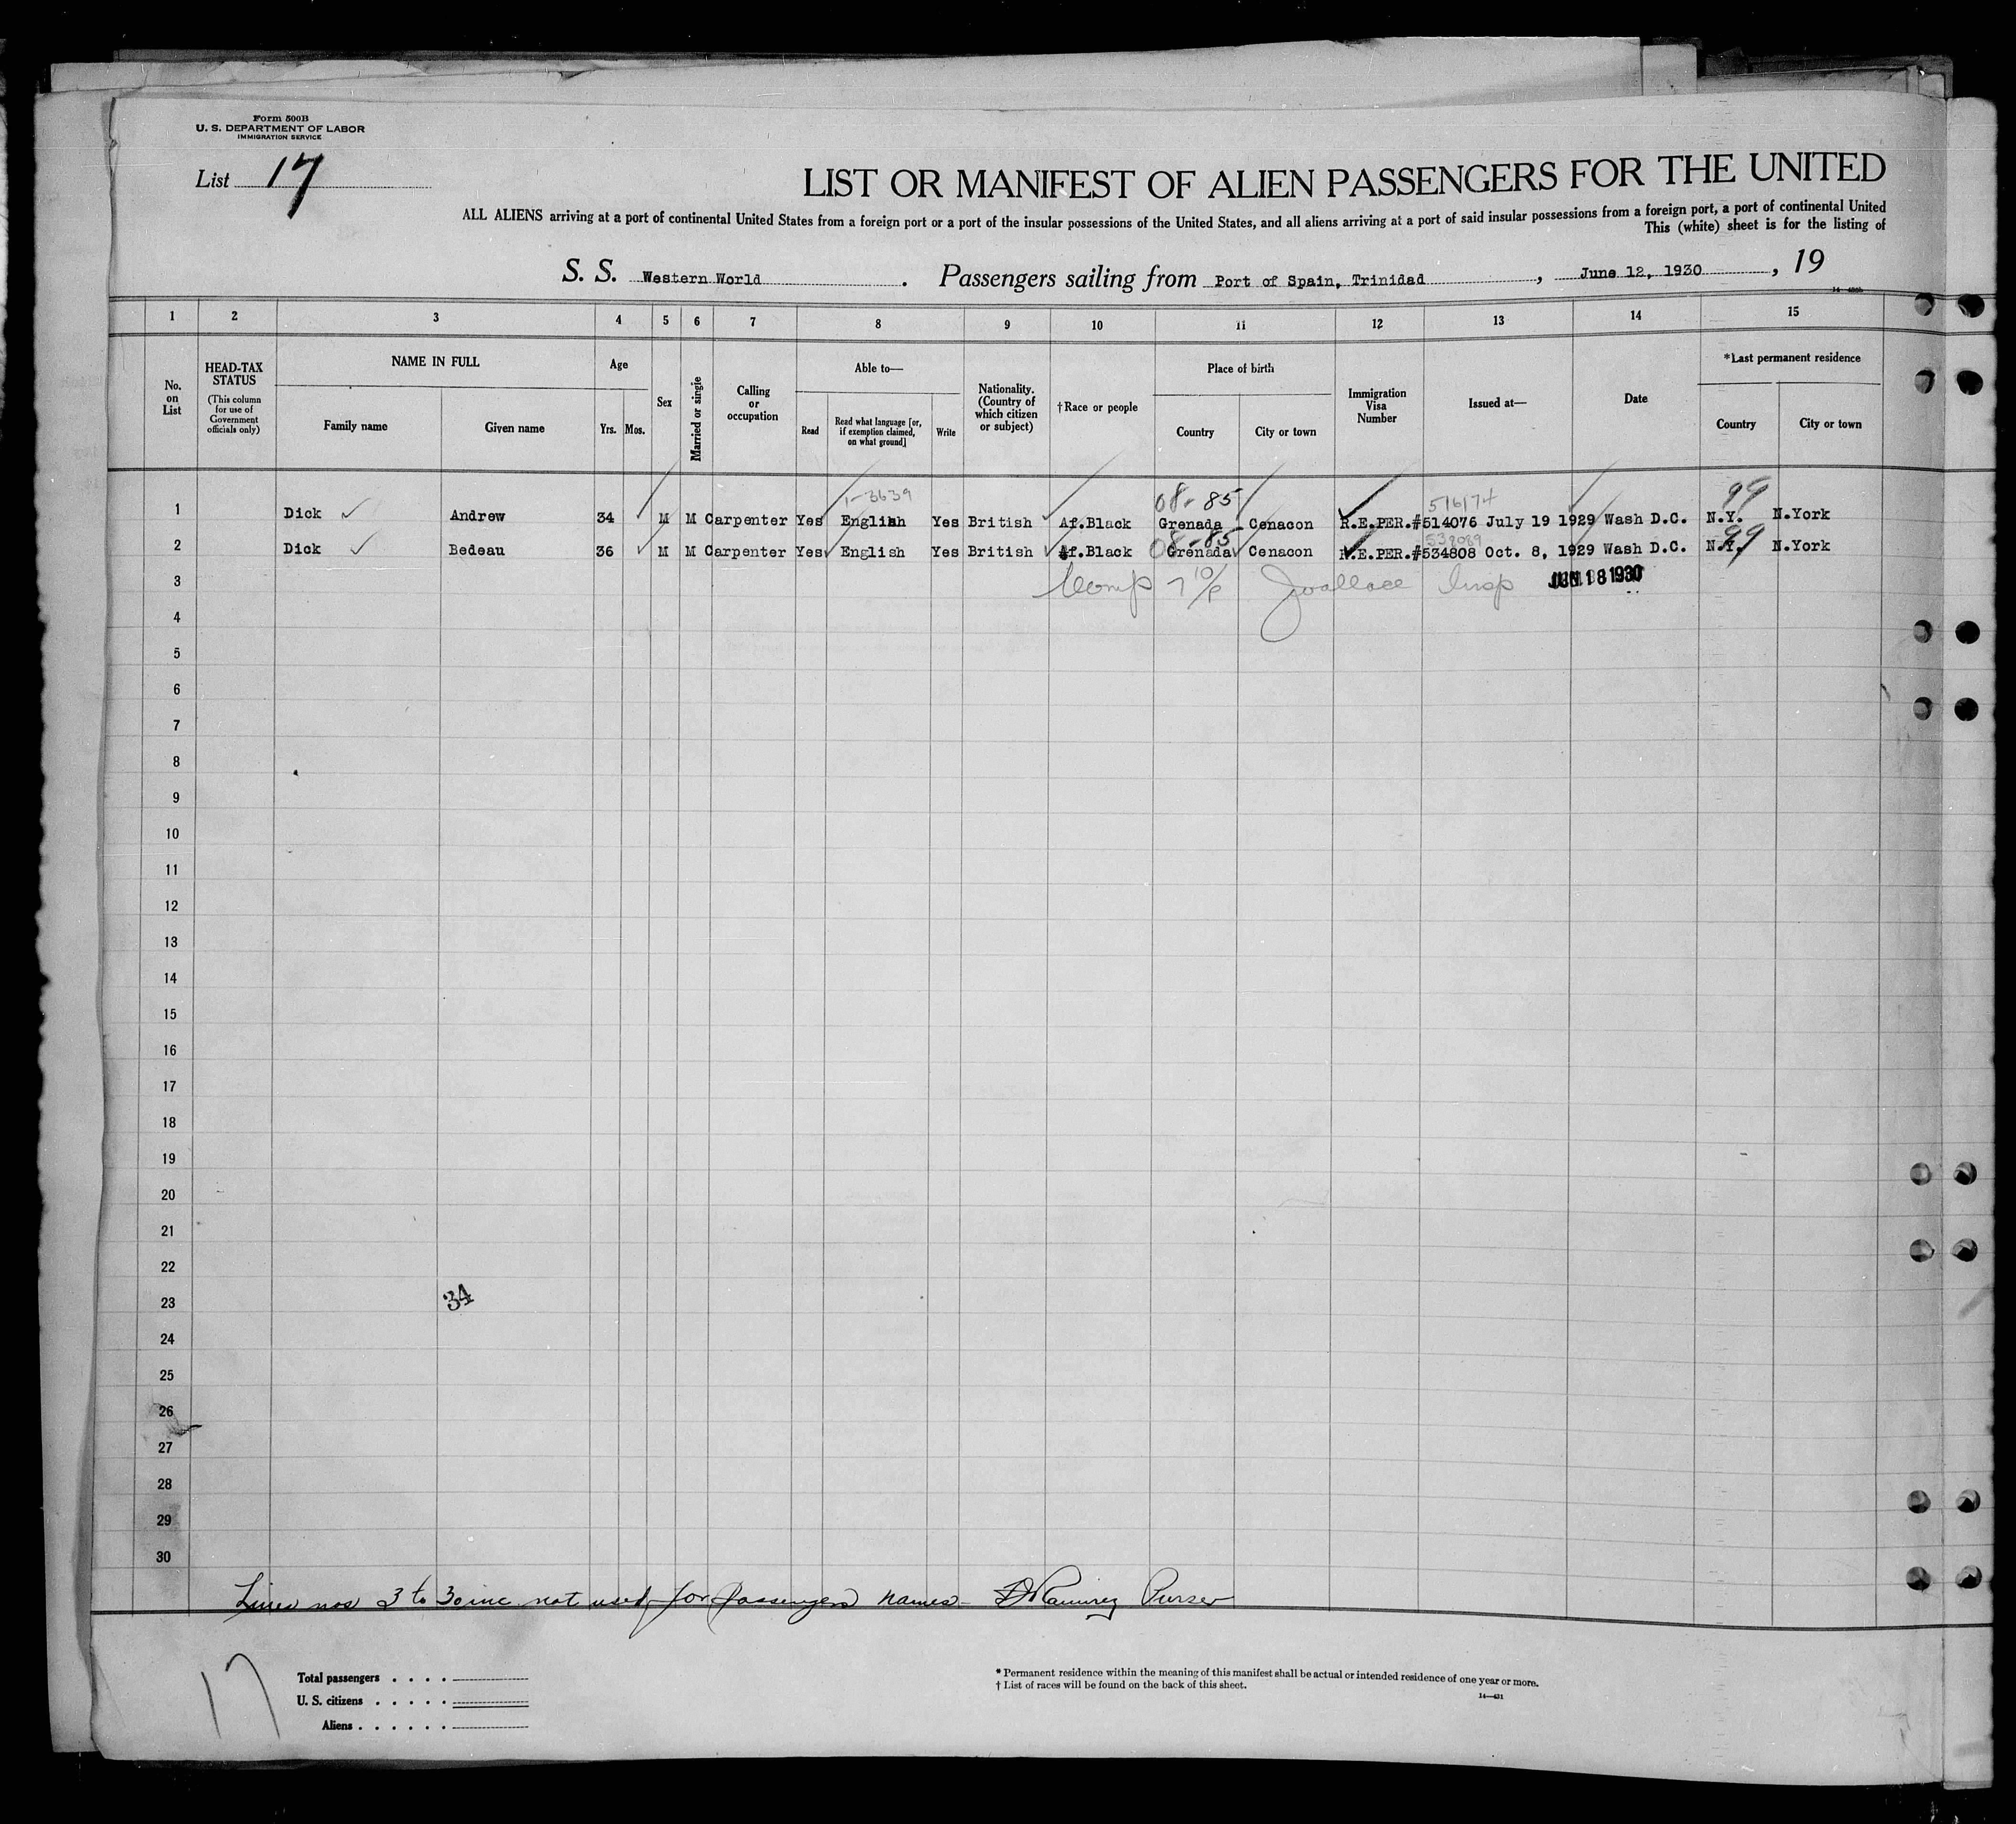 Form 500B
U. S. DEPARTMENT OF LABOR
IMMIGRATION SERVICE
List 17
LIST OR MANIFEST OF ALIEN PASSENGERS FOR THE UNITED
ALL ALIENS arriving at a port of continental United States from a foreign port or a port of the insular possessions of the United States, and all aliens arriving at a port of said insular possessions from a foreign port, a port of continental United
This (white) sheet is for the listing of
S. S. Western World . Passengers sailing from Port of Spain, Trinidad , June 12, 1930 , 19
1 2 3 4 5 6 7 8 9 10 11 12 13 14 15
No. on List
HEAD-TAX STATUS
(This column for use of Government officials only)
NAME IN FULL
Family name Given name
Age
Yrs. Mos.
Sex
Married or single
Calling or occupation
Able to—
Read
Read what language [or, if exemption claimed, on what ground]
Write
Nationality. (Country of which citizen or subject)
†Race or people
Place of birth
Country City or town
Immigration Visa Number
Issued at—
Date
*Last permanent residence
Country City or town
1-3639 08-85 516174 99
1 Dick Andrew 34 M M Carpenter Yes English Yes British Af.Black Grenada Cenacon R.E.PER.#514076 July 19 1929 Wash D.C. N.Y. N.York
08-85 538089 99
2 Dick Bedeau 36 M M Carpenter Yes English Yes British Af.Black Grenada Cenacon R.E.PER.#534808 Oct. 8, 1929 Wash D.C. N.Y. N.York
3 Jwallace Insp JUN 18 1930
4
5
6
7
8
9
10
11
12
13
14
15
16
17
18
19
20
21
22
23 34
24
25
26
27
28
29
30
Lines nos 3 to 30 inc not used for passengers names - Ramirez Purser
17
Total passengers
U. S. citizens
Aliens
* Permanent residence within the meaning of this manifest shall be actual or intended residence of one year or more.
† List of races will be found on the back of this sheet.
14—431